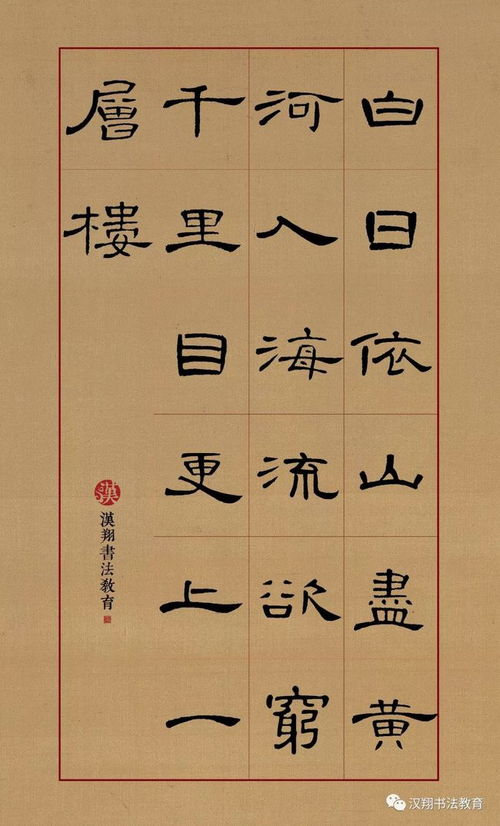 白日依山盡黃
河入海流欲窮
千里目更上一
層樓
漢
漢翔書法教育
汉翔书法教育